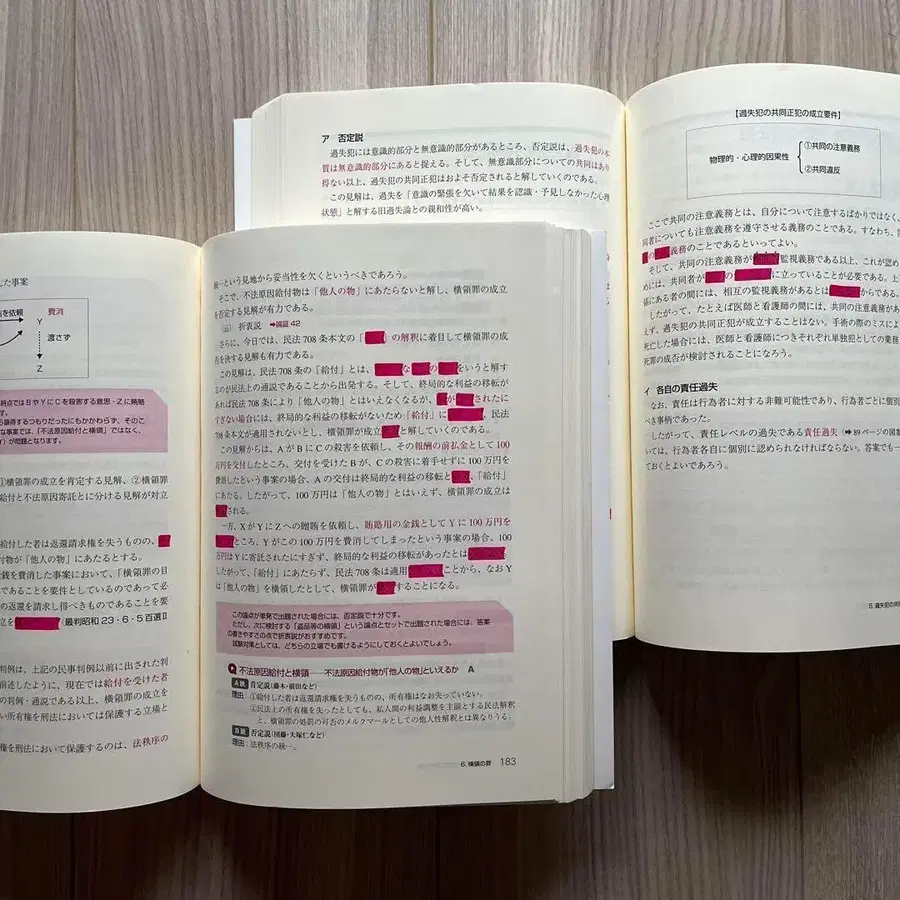 ア 否定説
過失犯には意識的部分と無意識的部分があるところ、否定説は、過失犯の本
質は無意識的部分にあると捉える。そして、無意識部分についての共同はあり
得ない以上、過失犯の共同正犯はおよそ否定されると解していくのである。
この見解は、過失を「意識の緊張を欠いて結果を認識・予見しなかった心理
状態」と解する旧過失論との親和性が高い。
【過失犯の共同正犯の成立要件】
物理的・心理的因果性
①共同の注意義務
②共同違反
ここで共同の注意義務とは、自分について注意するばかりではなく、
同者についても注意義務を遵守させる義務のことである。すなわち、
の 義務のことであるといってよい。
そして、共同の注意義務が 監視義務である以上、これが認め
めには、共同者が の に立っていることが必要である。上
係にある者の間には、相互の監視義務があるとは からである。
したがって、たとえば医師と看護師の間には、共同の注意義務があ
えず、過失犯の共同正犯が成立することはない。手術の際のミスによ
死亡した場合には、医師と看護師につきそれぞれ単独犯としての業務
死罪の成否が検討されることになろう。
イ 各自の責任過失
なお、責任は行為者に対する非難可能性であり、行為者ごとに個別
べき事柄であった。
したがって、責任レベルの過失である責任過失(➡89ページの図
いては、行為者各自に個別に認められなければならない。答案でも一
ておくとよいであろう。
した事案
を依頼
Y 費消
渡さず
Z
時点ではBやYにCを殺害する意思・Zに賄賂
す。
領得するつもりだったにもかかわらず、そのこ
な事案では、「不法原因給付と横領」ではなく、
が問題となります。
①横領罪の成立を肯定する見解、②横領罪
給付と不法原因寄託とに分ける見解が対立
給付した者は返還請求権を失うものの、
付物が「他人の物」にあたるとする。
金銭を費消した事案において、「横領罪の目
ることを要件としているのであって必
の返還を請求し得べきものであることを要
立を (最判昭和23・6・5百選Ⅱ
判例は、上記の民事判例以前に出された判
前述したように、現在では給付を受けた者
の判例・通説である以上、横領罪の成立を
い所有権を刑法においては保護する立場と
権を刑法において保護するのは、法秩序の
統一という見地から妥当性を欠くというべきであろう。
そこで、不法原因給付物は「他人の物」にあたらないと解し、横領罪の成立
を否定する見解が有力である。
折衷説 ➡論証42
さらに、今日では、民法708条本文の「 」の解釈に着目して横領罪の成
否を決する見解も有力である。
この見解は、民法708条の「給付」とは、 な の をいうと解す
るのが民法上の通説であることから出発する。そして、終局的な利益の移転が
あれば民法708条により「他人の物」とはいえなくなるが、 が されたに
すぎない場合には、終局的な利益の移転がないため「給付」に 、民法
708条本文が適用されないとし、横領罪が成立 と解していくのである。
この見解からは、AがBにCの殺害を依頼し、その報酬の前払金として100
万円を交付したところ、交付を受けたBが、Cの殺害に着手せずに100万円を
費消したという事案の場合、Aの交付は終局的な利益の移転と 、「給付」
にあたる。したがって、100万円は「他人の物」とはいえず、横領罪の成立は
される。
一方、XがYにZへの贈賄を依頼し、賄賂用の金銭としてYに100万円を
ところ、Yがこの100万円を費消してしまったという事案の場合、100
万円はYに寄託されたにすぎず、終局的な利益の移転があったとは 。
したがって、「給付」にあたらず、民法708条は適用 ことから、なおY
は「他人の物」を横領したとして、横領罪が することになる。
この論点が単発で出題された場合には、否定説で十分です。
ただし、次に検討する「盗品等の横領」という論点とセットで出題された場合には、答案
の書きやすさの点で折衷説がおすすめです。
試験対策としては、どちらの立場でも書けるようにしておくとよいでしょう。
不法原因給付と横領――不法原因給付物が「他人の物」といえるか A
A説 肯定説(藤木・前田など)
理由:①給付した者は返還請求権を失うものの、所有権はなお失っていない。
②民法上の所有権を失ったとしても、私人間の利益調整を主眼とする民法解釈
と、横領罪の処罰の可否のメルクマールとしての他人性解釈とは異なりうる。
B説 否定説(団藤・大塚仁など)
理由:法秩序の統一。
6. 横領の罪 183
5. 過失犯の共同